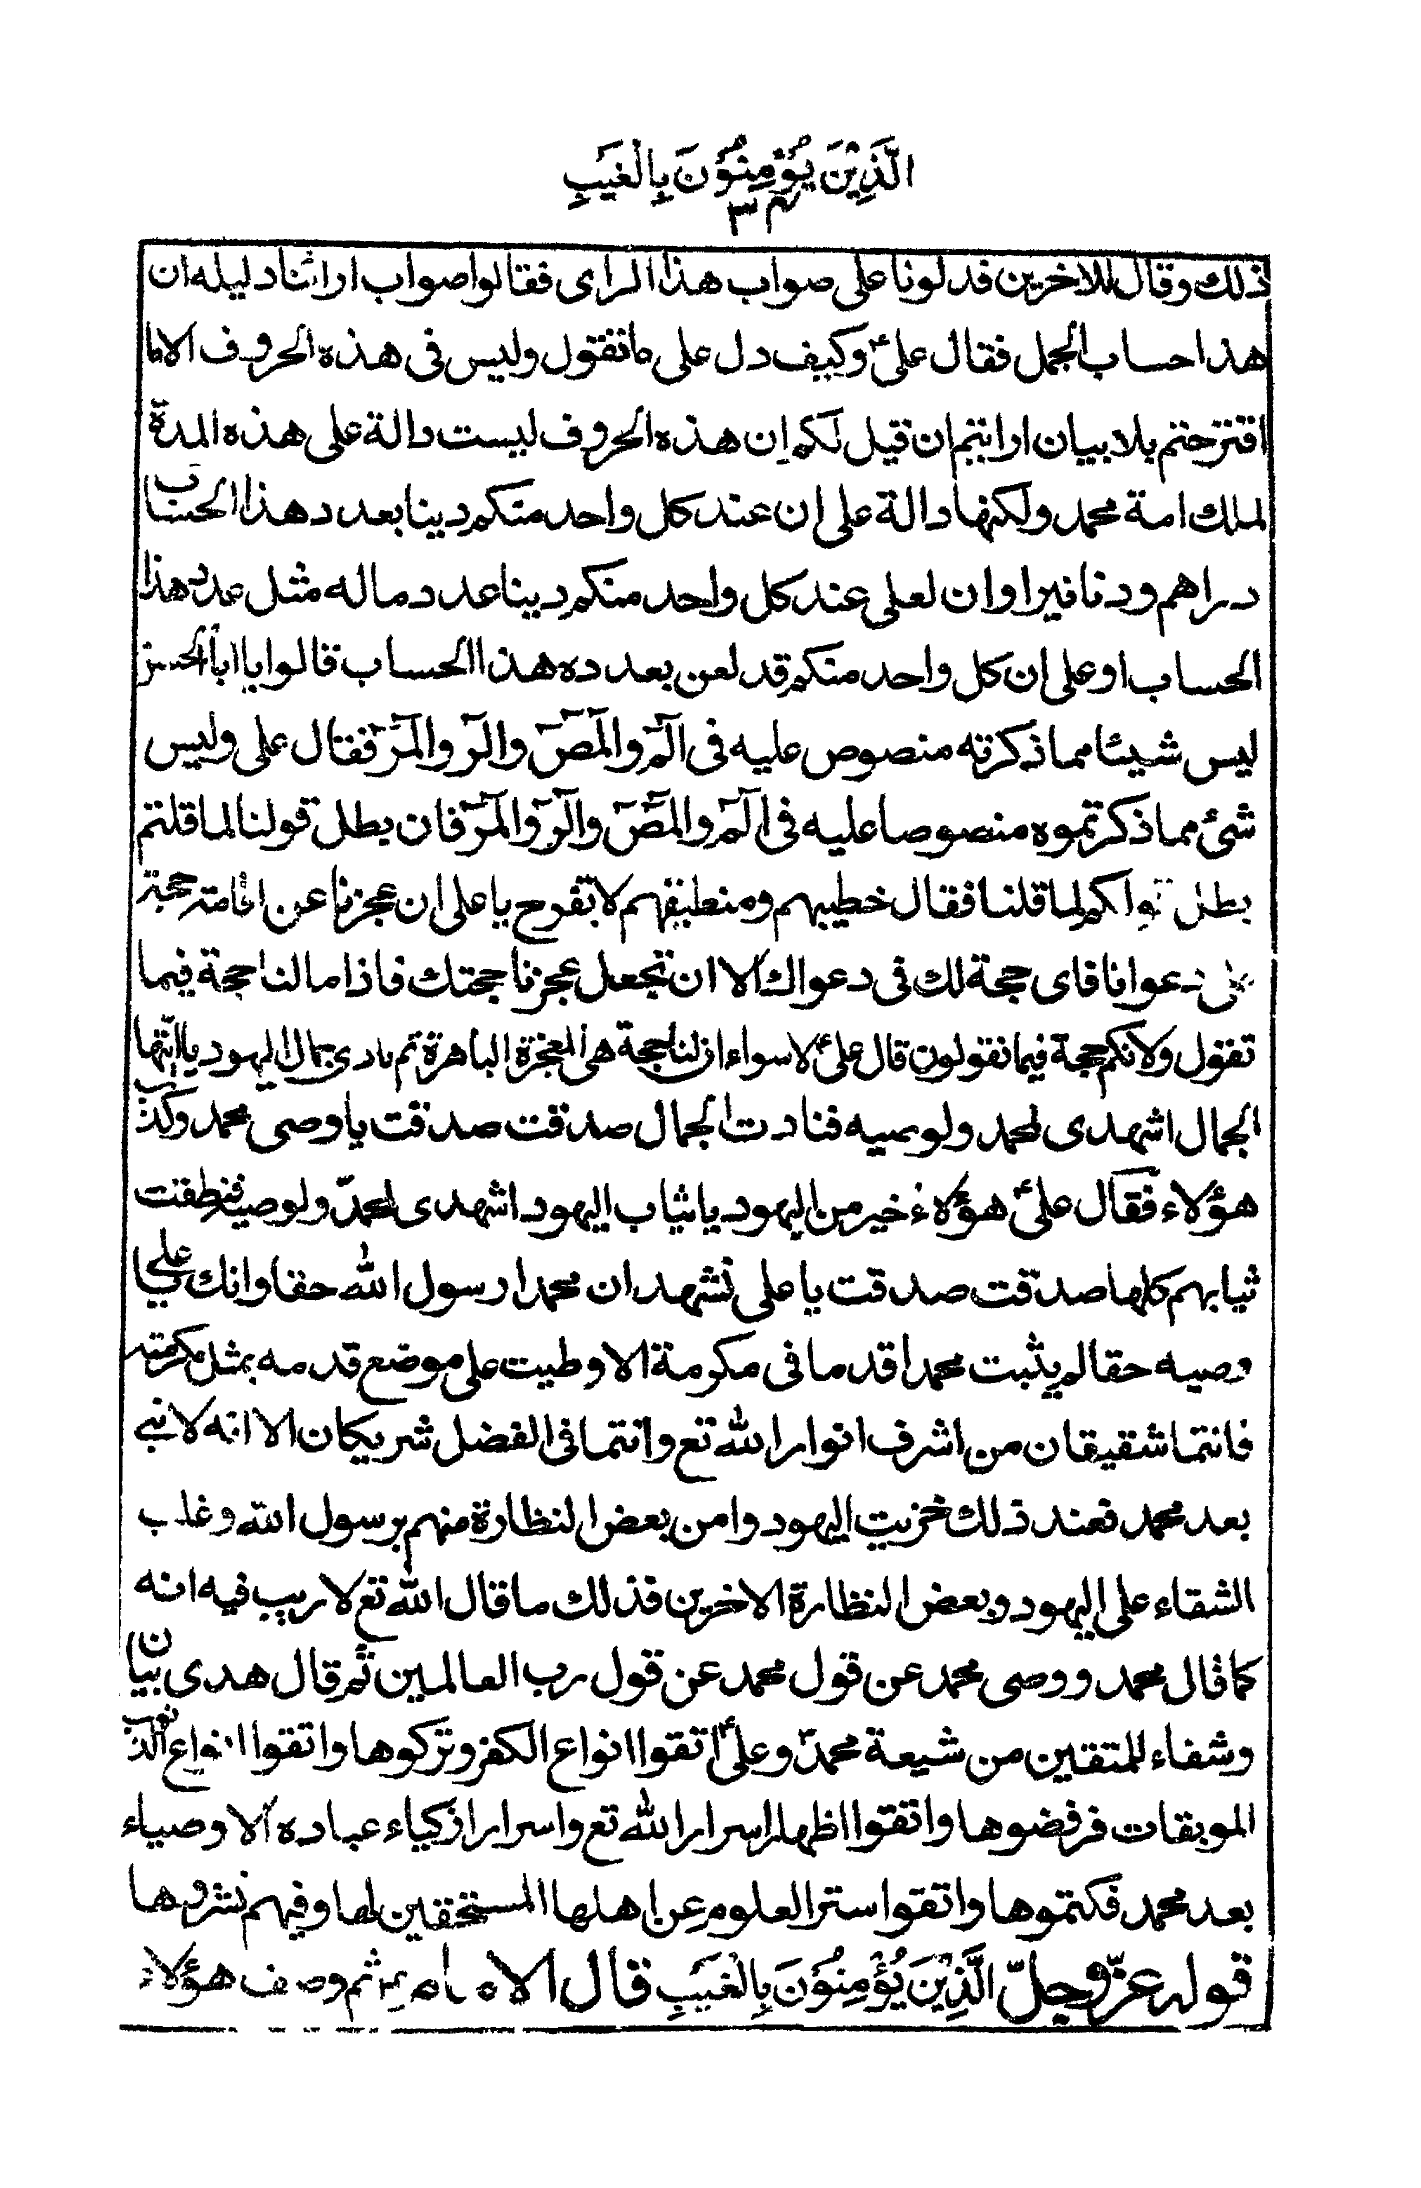 الَّذِيْنَ يُؤْمِنُوْنَ بِالْغَيْبِ
٣٣
ذلك وقال للاخرين فدلونا على صواب هذا الراى فقالوا صواب اراتنا دليله ان
هذا حساب الجمل فقال علىؑ وكيف دل على ما تقول وليس فى هذه الحروف الا ما
اقترحتم بلا بيان ارايتم ان قيل لكم ان هذه الحروف ليست دالة على هذه المدة
لملك امة محمد ولكنها دالة على ان عند كل واحد منكم دينا بعدد هذا الحساب
دراهم ودنانيرا وان لعلى عند كل واحد منكم دينا عدد ماله مثل عدد هذا
الحساب او على ان كل واحد منكم قد لعن بعدده هذا الحساب قالوا يا ابا الحسن
ليس شيئا مما ذكرته منصوص عليه فى الٓمٓ والٓمٓصٓ والٓرٓ والٓمٓرٓ فقال على وليس
شئ مما ذكرتموه منصوصا عليه فى الٓمٓ والٓمٓصٓ والٓرٓ والٓمٓرٓ فان بطل قولنا لما قلتم
بطل قولكم لما قلنا فقال خطيبهم ومنطيقهم لا تفرح يا على ان عجزنا عن اقامة حجة
على دعوانا فاى حجة لك فى دعواك الا ان تجعل عجزنا حجتك فاذا ما لنا حجة فيما
تقول ولا لكم حجة فيما تقولون قال علىؑ لا سواء ان لنا حجة هى المعجزة الباهرة ثم نادى جمال اليهود يا ايتها
الجمال اشهدى لمحمد ولوصيه فنادت الجمال صدقت صدقت يا وصى محمد وكذب
هؤلاء فقال علىؑ هؤلاء خير من اليهود يا ثياب اليهود اشهدى لمحمدؐ ولوصيه فنطقت
ثيابهم كلها صدقت صدقت يا على نشهد ان محمدا رسول الله حقا وانك يا على
وصيه حقا لم يثبت محمدا قدما فى مكرمة الا وطيت على موضع قدمه بمثل مكرمته
فانتما شقيقان من اشرف انوار الله تع وانتما فى الفضل شريكان الا انه لا نبى
بعد محمد فعند ذلك خزيت اليهود وامن بعض النظارة منهم برسول الله وغلب
الشقاء على اليهود وبعض النظارة الاخرين فذلك ما قال الله تع لا ريب فيه انه
كما قال محمد ووصى محمد عن قول محمد عن قول رب العالمين ثم قال هدى بيان
وشفاء للمتقين من شيعة محمدؐ وعلىؑ اتقوا انواع الكفر وتركوها واتقوا انواع الذنوب
الموبقات فرفضوها واتقوا اظهار اسرار الله تع واسرار ازكياء عباده الاوصياء
بعد محمد فكتموها واتقوا ستر العلوم عن اهلها المستحقين لها وفيهم نشروها
قوله عزّ وجلّ الَّذِيْنَ يُؤْمِنُوْنَ بِالْغَيْبِ قال الامام ثم وصف هؤلاء